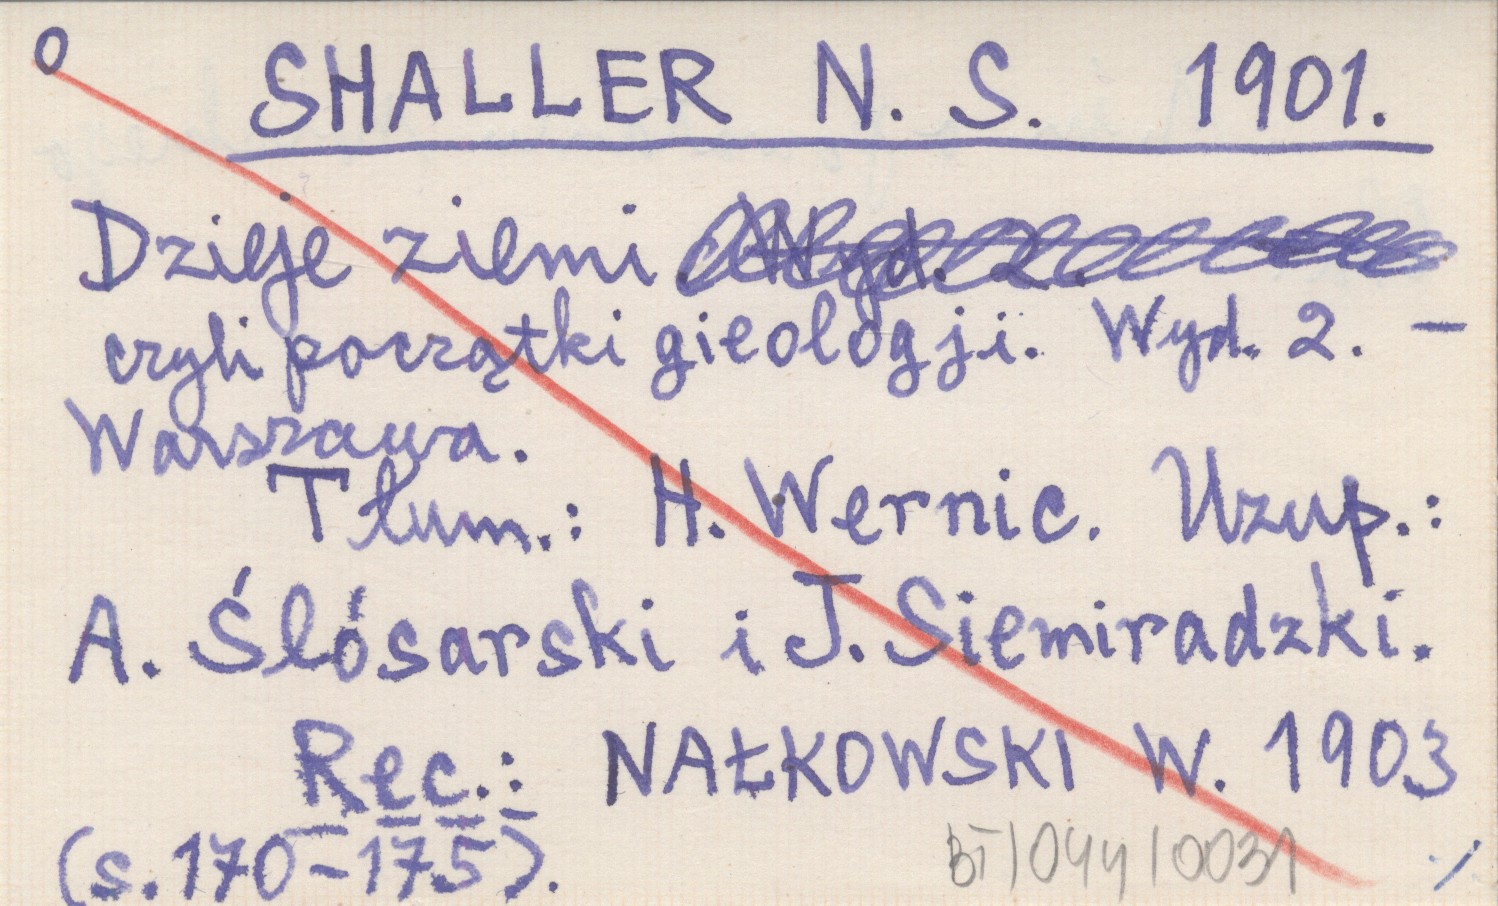 O
SHALLER N. S. 1901.
Dzieje ziemi. Wyd. 2.
czyli początki gieologji. Wyd. 2. –
Warszawa.
Tłum.: H. Wernic. Uzup.:
A. Ślósarski i J. Siemiradzki.
Rec.: NAŁKOWSKI W. 1903
(s. 170–175).
BI/044/0031